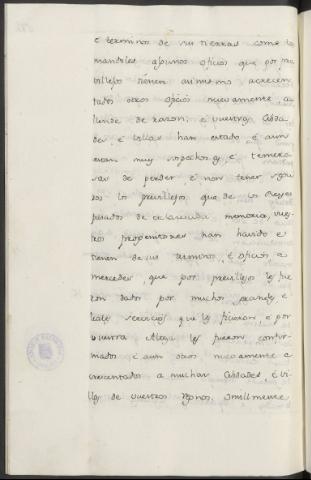 e terminos de sus tierras como lo
mandoles algunos oficios que por pre
villejos tienen asimismo acrecen
tados otros oficios nuevamente a
llende de razon, e vuestras Cibda
des, e villas han estado e aun
estan muy sopechosas, e temero
sas de perder, e non tener segu
ros los previllejos que de los Reyes
pasados de esclarecida memoria, vues
tros progenitores han havido e
tienen de sus terminos, e oficios, e
mercedes, que por previllejos les fue
ron dados por muchos grandes, e
leales servicios que les ficieron, e por
vuestra Alteza les fueron confir
mados e aun otros nuevamente a
crecentados a muchas Cibdades e vi
llas de vuestros regnos, similmente